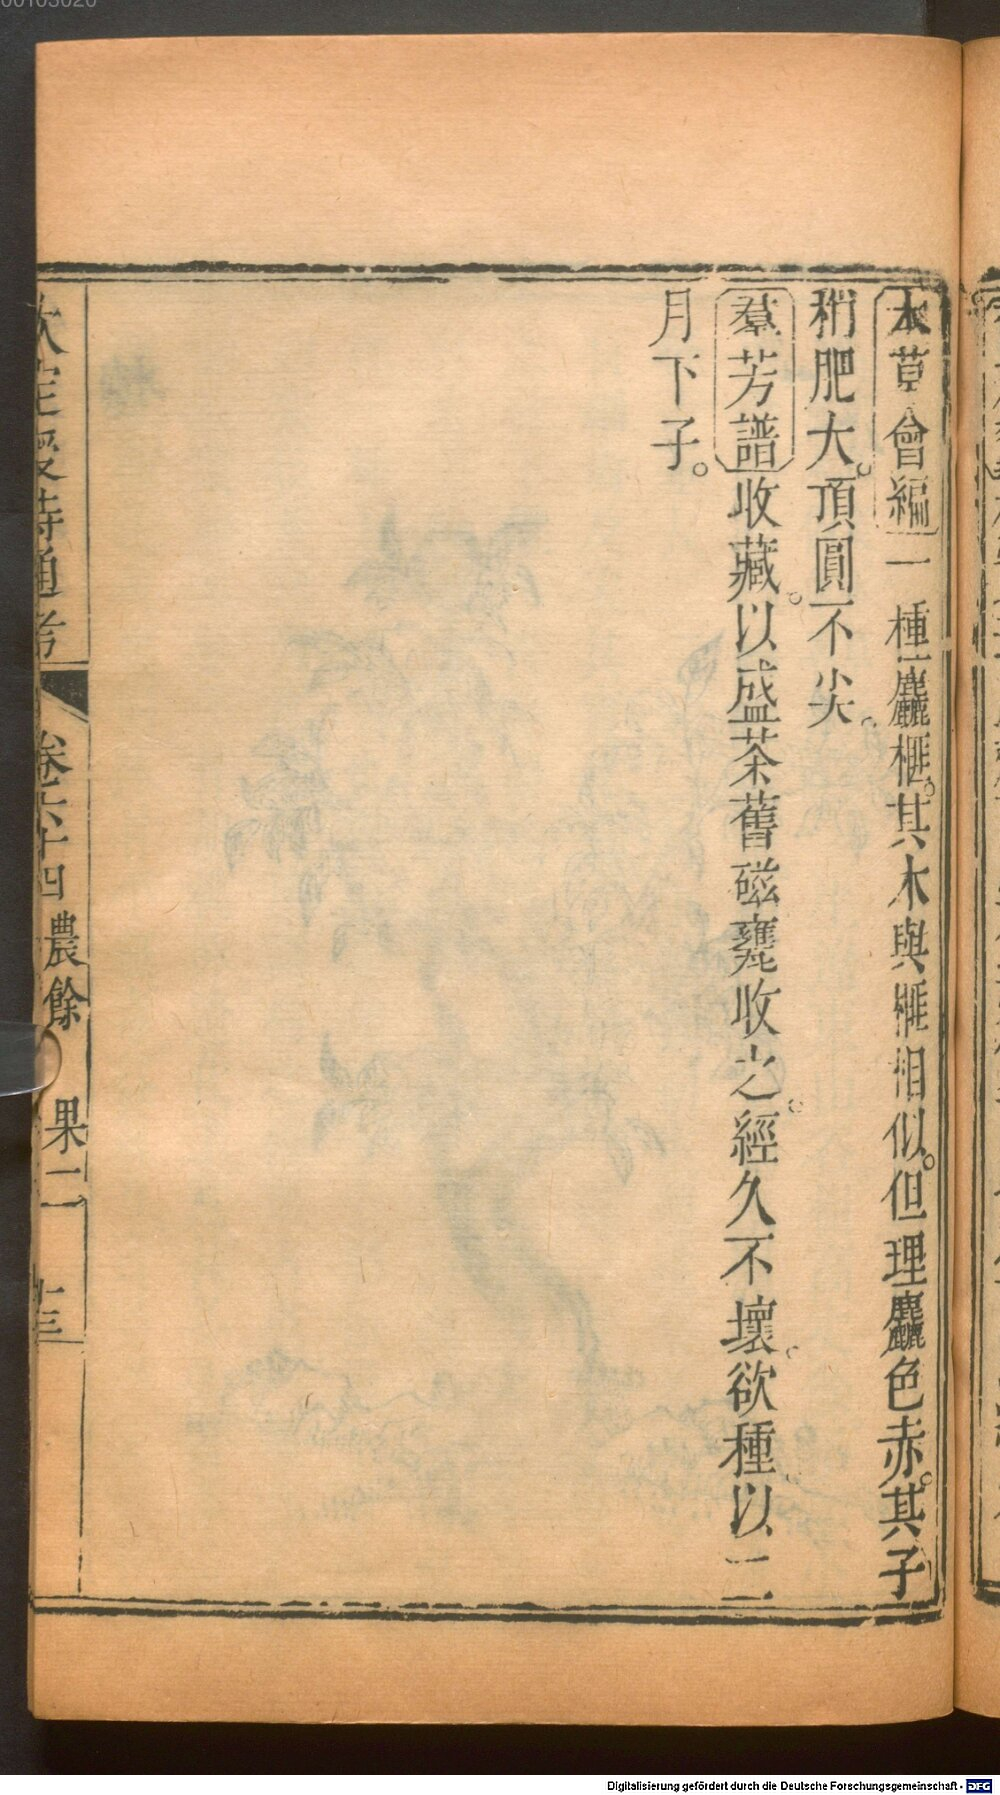 本草會編一種麤榧。其木與榧相似。但理麤色赤。其子
稍肥大。頂圓不尖。
羣芳譜收藏。以盛茶舊磁甕收之。經久不壞。欲種以二
月下子。
欽定授時通考 卷六十四農餘 果二
Digitalisierung gefördert durch die Deutsche Forschungsgemeinschaft - DFG